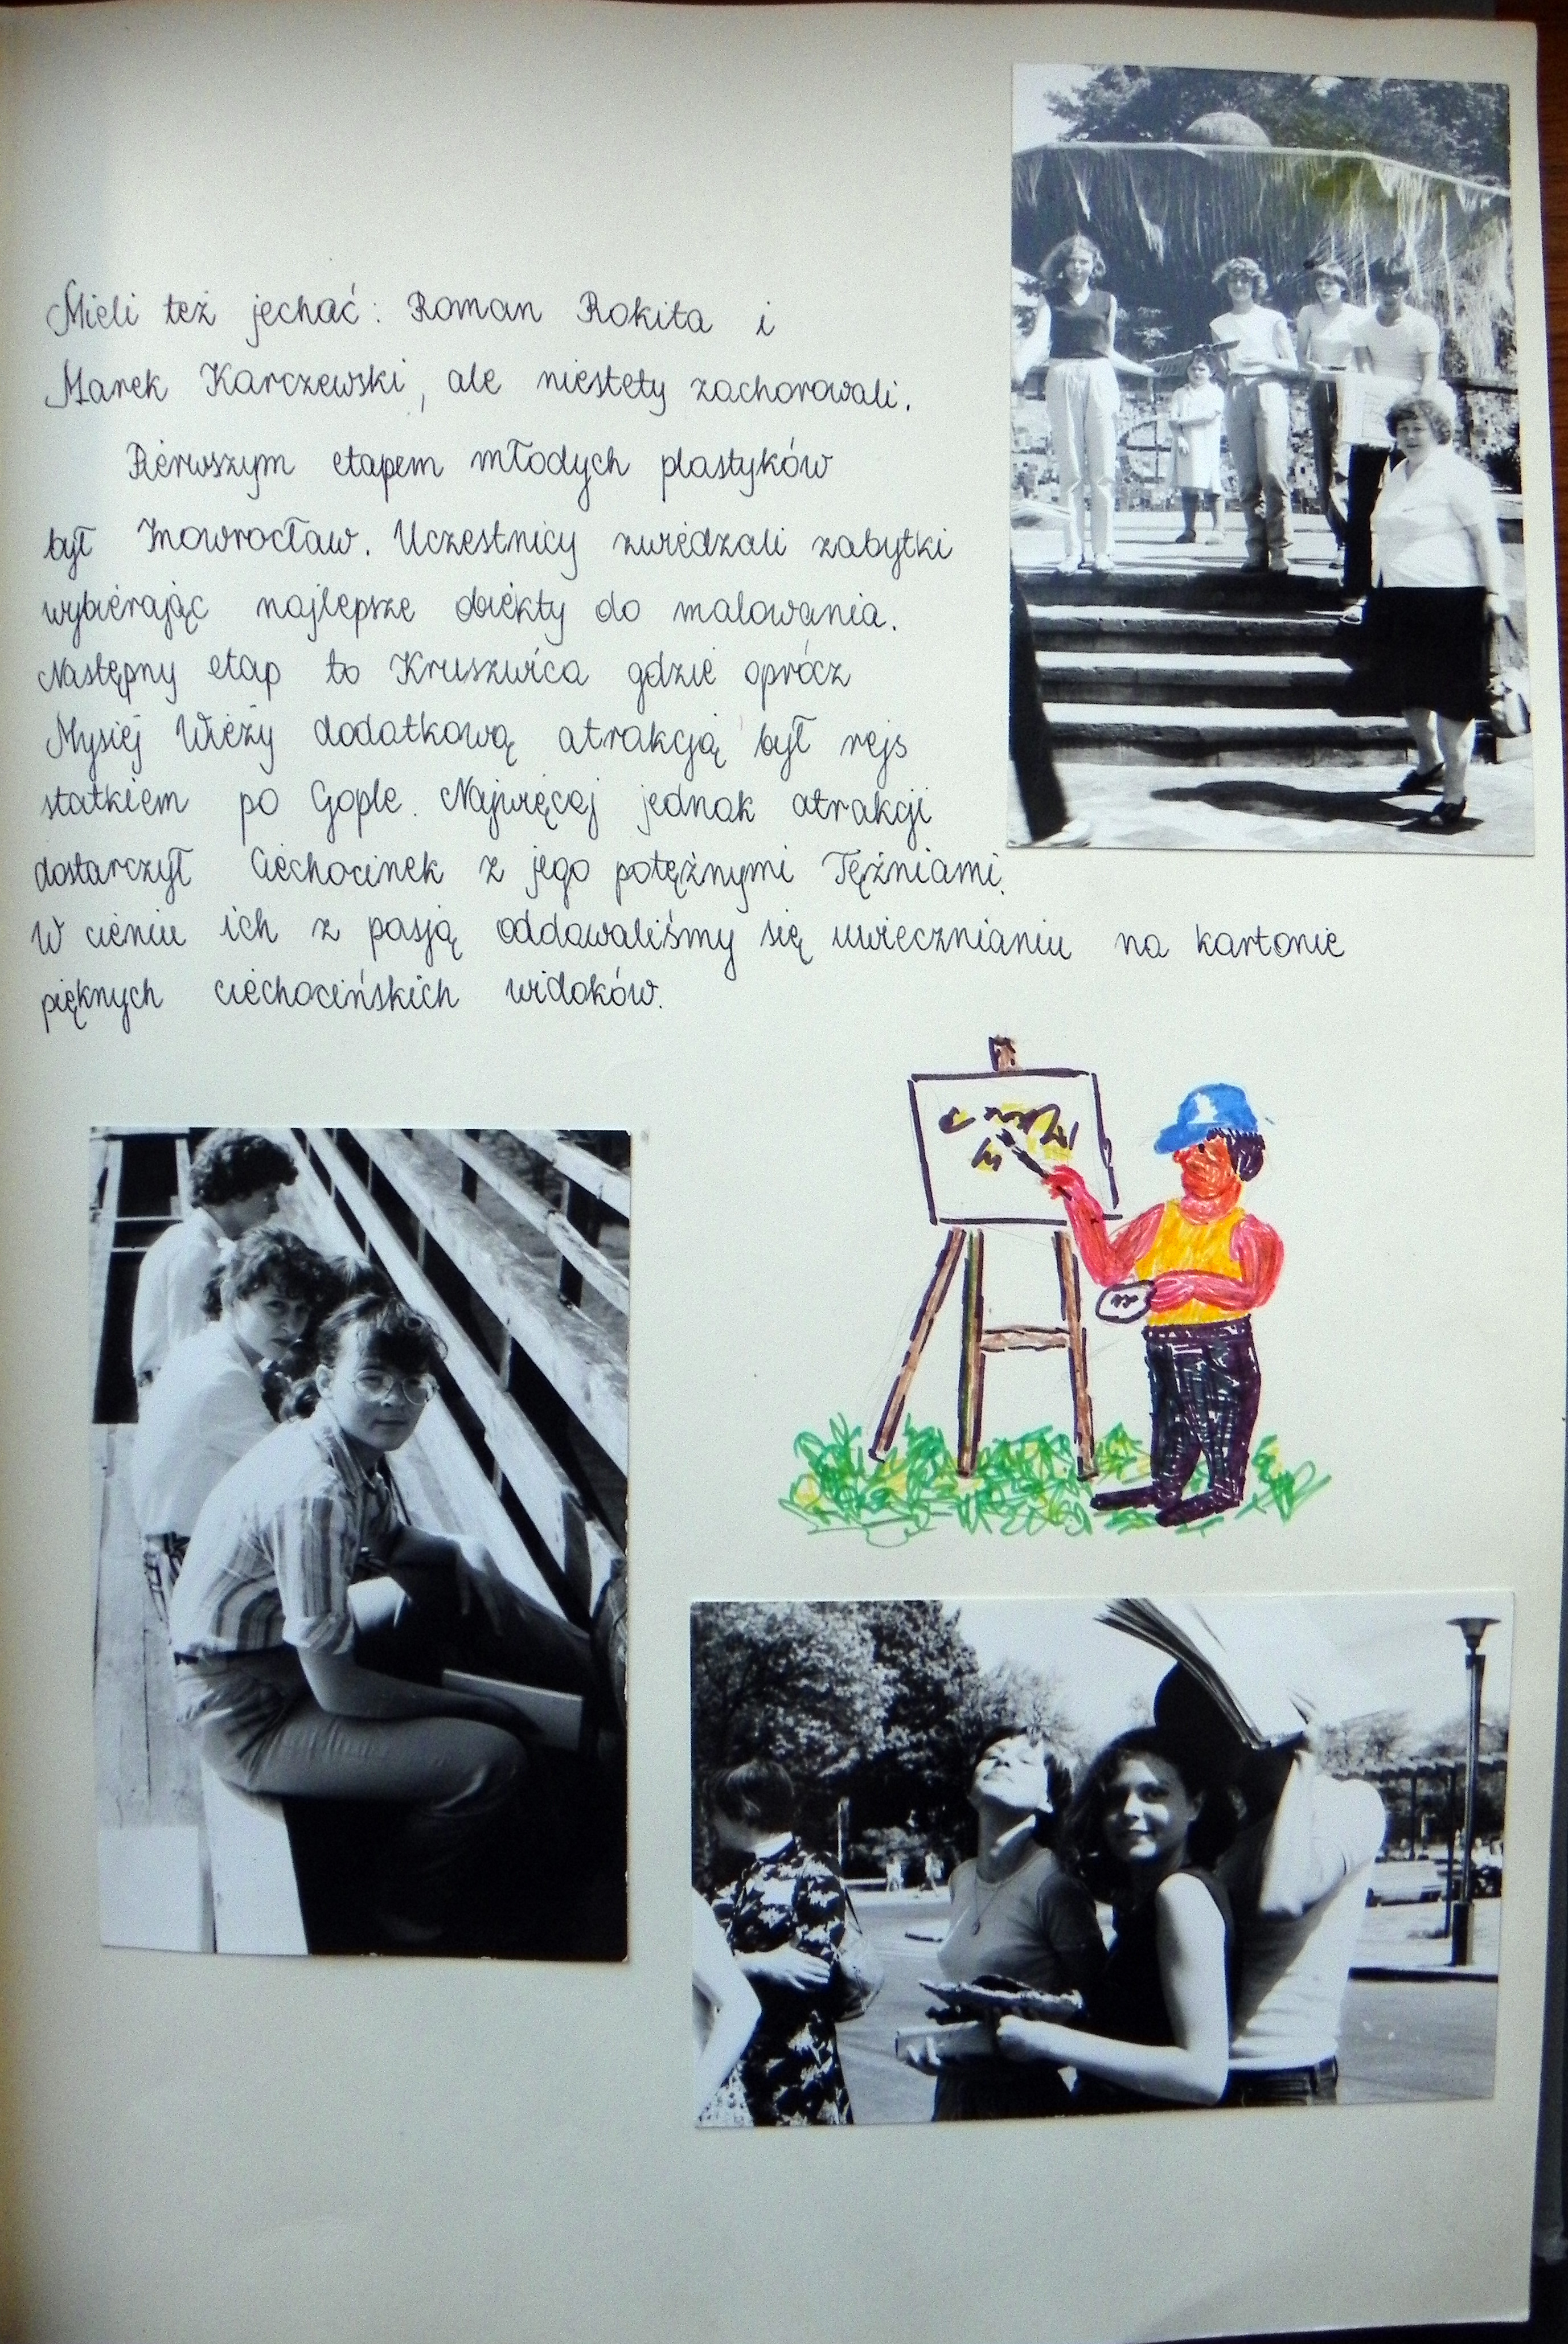 Mieli też jechać: Roman Rokita i
Marek Karczewski, ale niestety zachorowali.
Pierwszym etapem młodych plastyków
był Inowrocław. Uczestnicy zwiedzali zabytki
wybierając najlepsze obiekty do malowania.
Następny etap to Kruszwica gdzie oprócz
Mysiej Wieży dodatkową atrakcją był rejs
statkiem po Gople. Najwięcej jednak atrakcji
dostarczył Ciechocinek z jego potężnymi Tężniami.
W cieniu ich z pasją oddawaliśmy się uwiecznianiu na kartonie
pięknych ciechocińskich widoków.